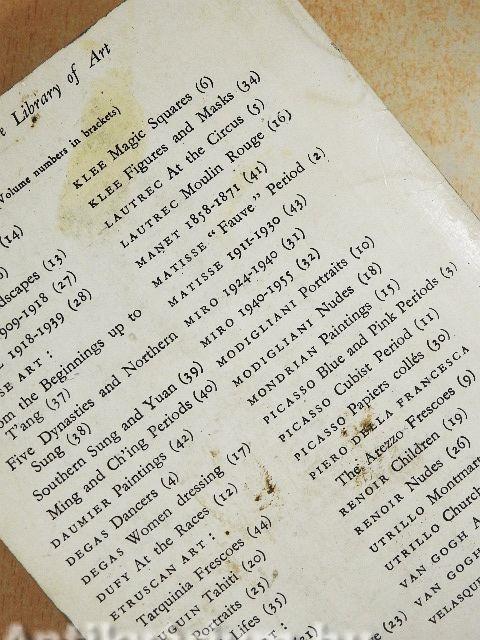 Library of Art
Volume numbers in brackets)
(14)
(13)
909-1918 (27)
1918-1939 (28)
SE ART:
the Beginnings up to
T'ang (37)
Five Dynasties and Northern
Sung (38)
Southern Sung and Yuan (39)
Ming and Ch'ing Periods (40)
DAUMIER Paintings (42)
DEGAS Dancers (4)
DEGAS Women dressing (17)
DUFY At the Races (12)
ETRUSCAN ART:
Tarquinia Frescoes (44)
Tahiti (20)
Portraits (25)
(35)
KLEE Magic Squares (6)
KLEE Figures and Masks (34)
LAUTREC At the Circus (5)
LAUTREC Moulin Rouge (16)
MANET 1858-1871 (41)
MATISSE "Fauve" Period (2)
MATISSE 1911-1930 (43)
MIRO 1924-1940 (31)
MIRO 1940-1955 (32)
MODIGLIANI Portraits (10)
MODIGLIANI Nudes (18)
MONDRIAN Paintings (15)
PICASSO Blue and Pink Periods (3)
PICASSO Cubist Period (11)
PICASSO Papiers collés (30)
PIERO DELLA FRANCESCA
The Arezzo Frescoes (9)
RENOIR Children (19)
RENOIR Nudes (26)
UTRILLO Montmart
UTRILLO Church
VAN GOGH A
VAN GOGH
VELASQUE
(23)